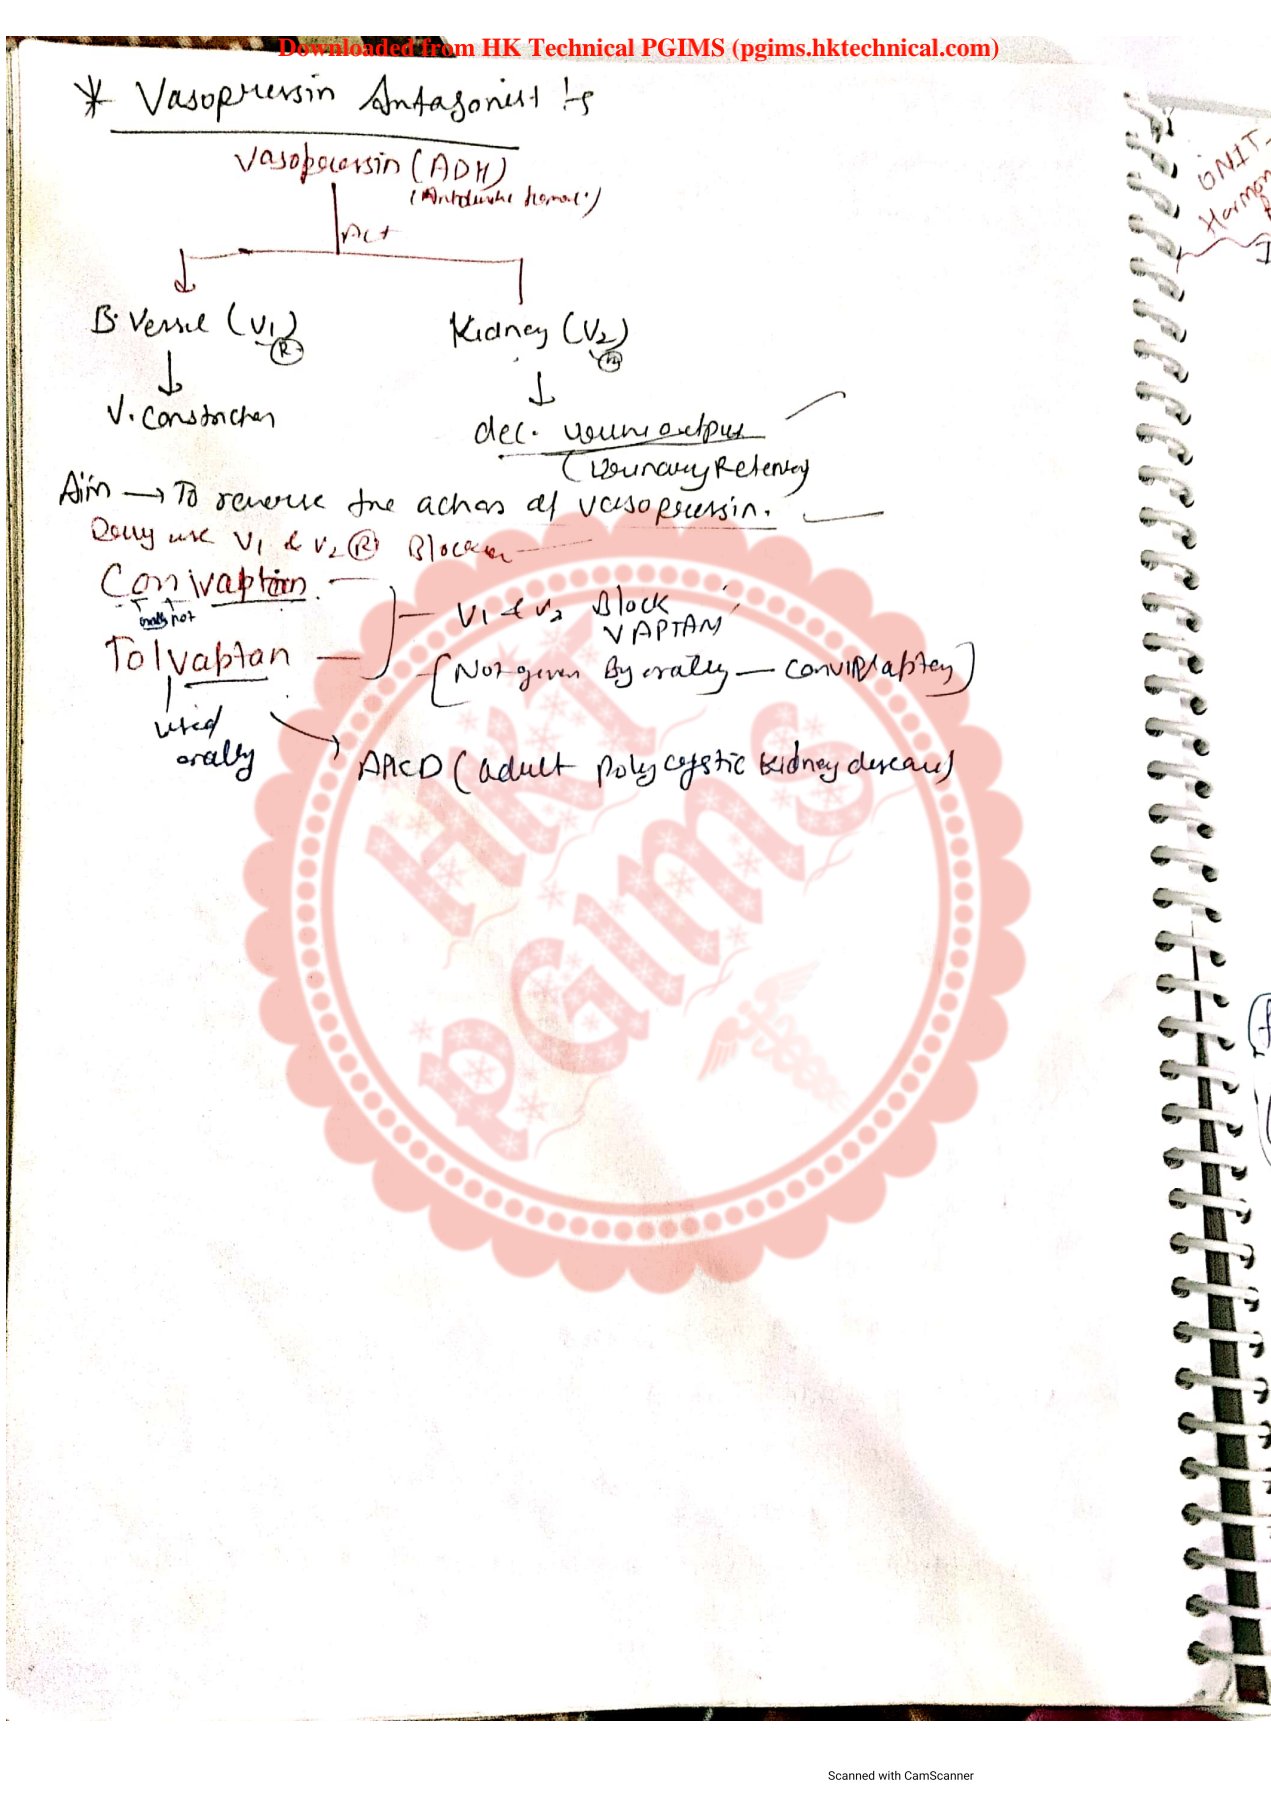 Downloaded from HK Technical PGIMS (pgims.hktechnical.com)
* Vasopressin Antagonist :-
Vasopressin (ADH)
(Antidiuretic hormone)
Act
B. Vessel (V1) R
Kidney (V2) R
V. Constriction
dec. urine output
(Urinary Retency
Aim → To reverse the action of vasopressin.
Drug use V1 & V2 R Blocker
Conivaptan
orally not
V1 & V2 Block
VAPTAN
Tolvaptan
(Not given By orally —
used
orally
APKD (adult polycystic kidney disease)
UNIT-
HKT
PGIMS
Scanned with CamScanner